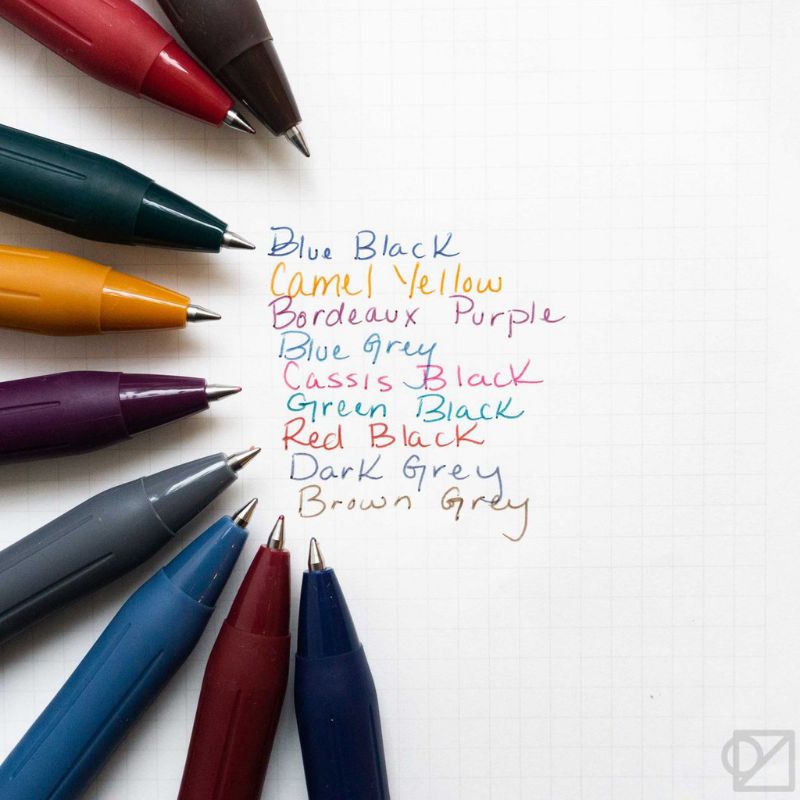 Blue Black
Camel Yellow
Bordeaux Purple
Blue Grey
Cassis Black
Green Black
Red Black
Dark Grey
Brown Grey